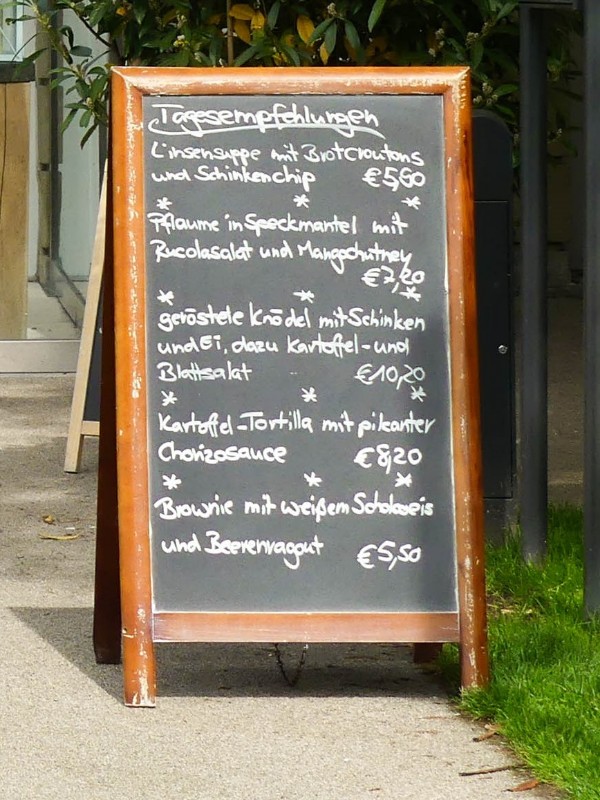 Tagesempfehlungen
Linsensuppe mit Brotcroutons
und Schinkenchip €5,60
* * *
Pflaume in Speckmantel mit
Rucolasalat und Mangochutney
€7,20
* * *
geröstete Knödel mit Schinken
und Ei, dazu Kartoffel- und
Blattsalat €10,20
* * *
Kartoffel-Tortilla mit pikanter
Chorizosauce €8,20
* * *
Brownie mit weißem Schokoeis
und Beerenragout €5,50